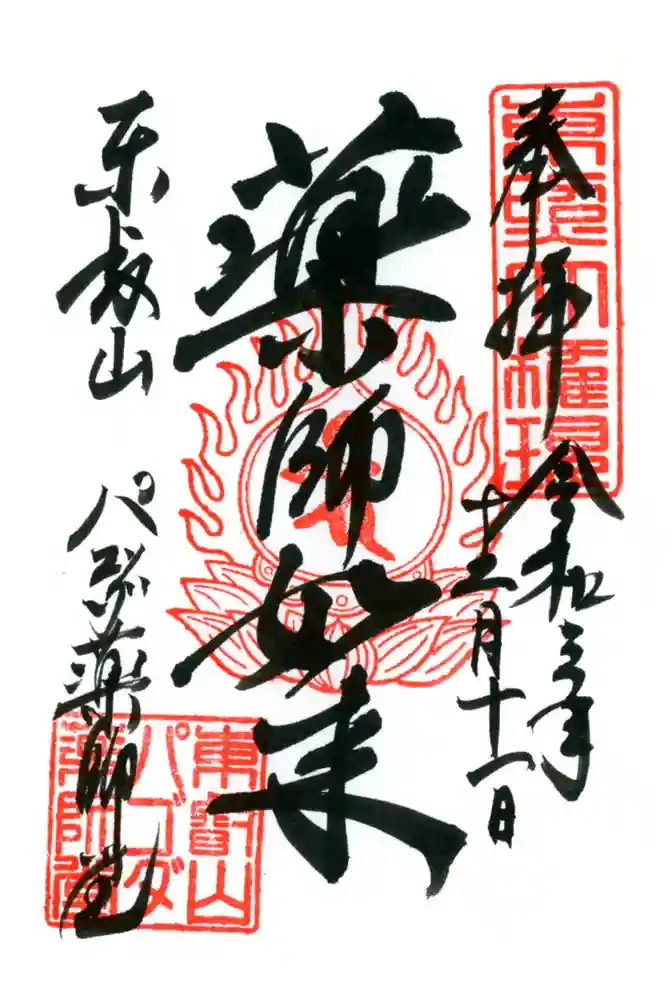 奉拝
東照大権現
令和三年
十二月十一日
薬師如来
東叡山
パゴダ薬師堂
東叡山
パゴダ
薬師堂